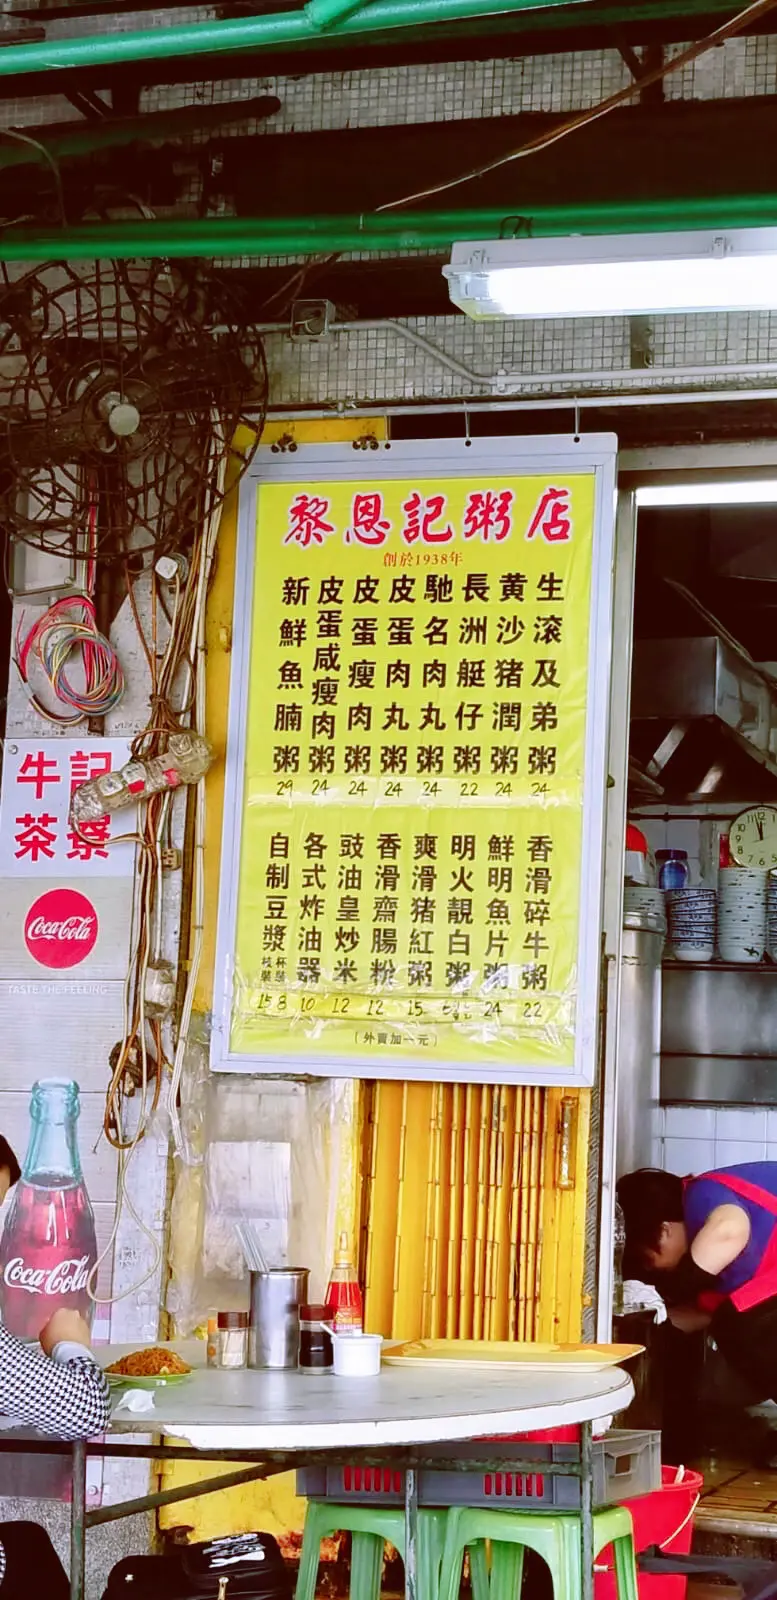 黎恩記粥店
創於1938年
生滚及弟粥 24
黄沙猪潤粥 24
長洲艇仔粥 22
馳名肉丸粥 24
皮蛋肉丸粥 24
皮蛋瘦肉粥 24
皮蛋咸瘦肉粥 24
新鮮魚腩粥 29
香滑碎牛粥 22
鮮明魚片粥 24
明火靚白粥
爽滑猪紅粥 15
香滑齋腸粉 12
豉油皇炒米 12
各式炸油器 10
自制豆漿 杯裝 8 枝裝 15
(外賣加一元)
牛記
茶寮
Coca-Cola
TASTE THE FEELING
Coca-Cola